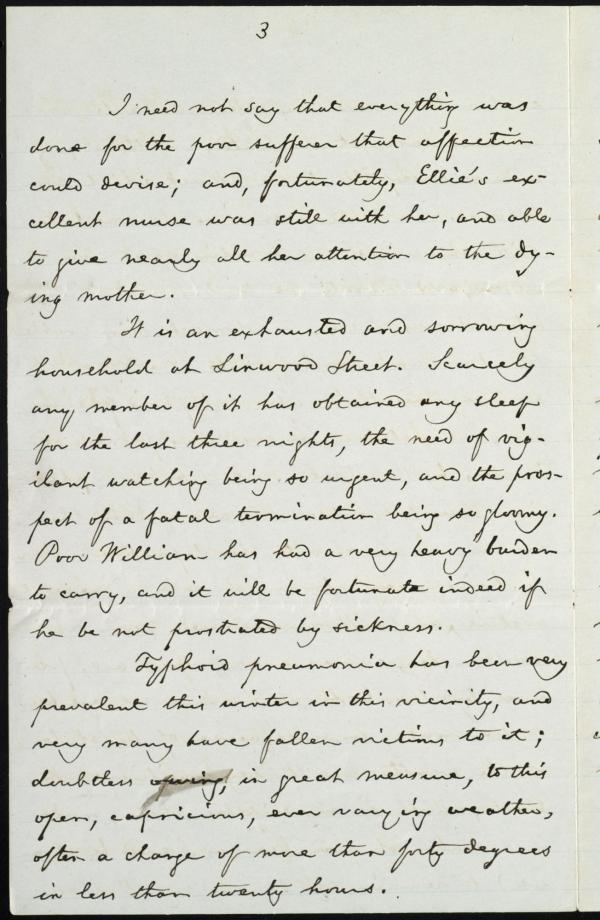 3
I need not say that everything was
done for the poor sufferer that affection
could devise; and, fortunately, Ellie's ex-
cellent nurse was still with her, and able
to give nearly all her attention to the dy-
ing mother.
It is an exhausted and sorrowing
household at Linwood Street. Scarcely
any member of it has obtained any sleep
for the last three nights, the need of vig-
ilant watching being so urgent, and the pros-
pect of a fatal termination being so gloomy.
Poor William has had a very heavy burden
to carry, and it will be fortunate indeed if
he be not prostrated by sickness.
Typhoid pneumonia has been very
prevalent this winter in this vicinity, and
very many have fallen victims to it;
doubtless owing, in great measure, to this
open, capricious, ever varying weather,
often a change of more than forty degrees
in less than twenty hours.